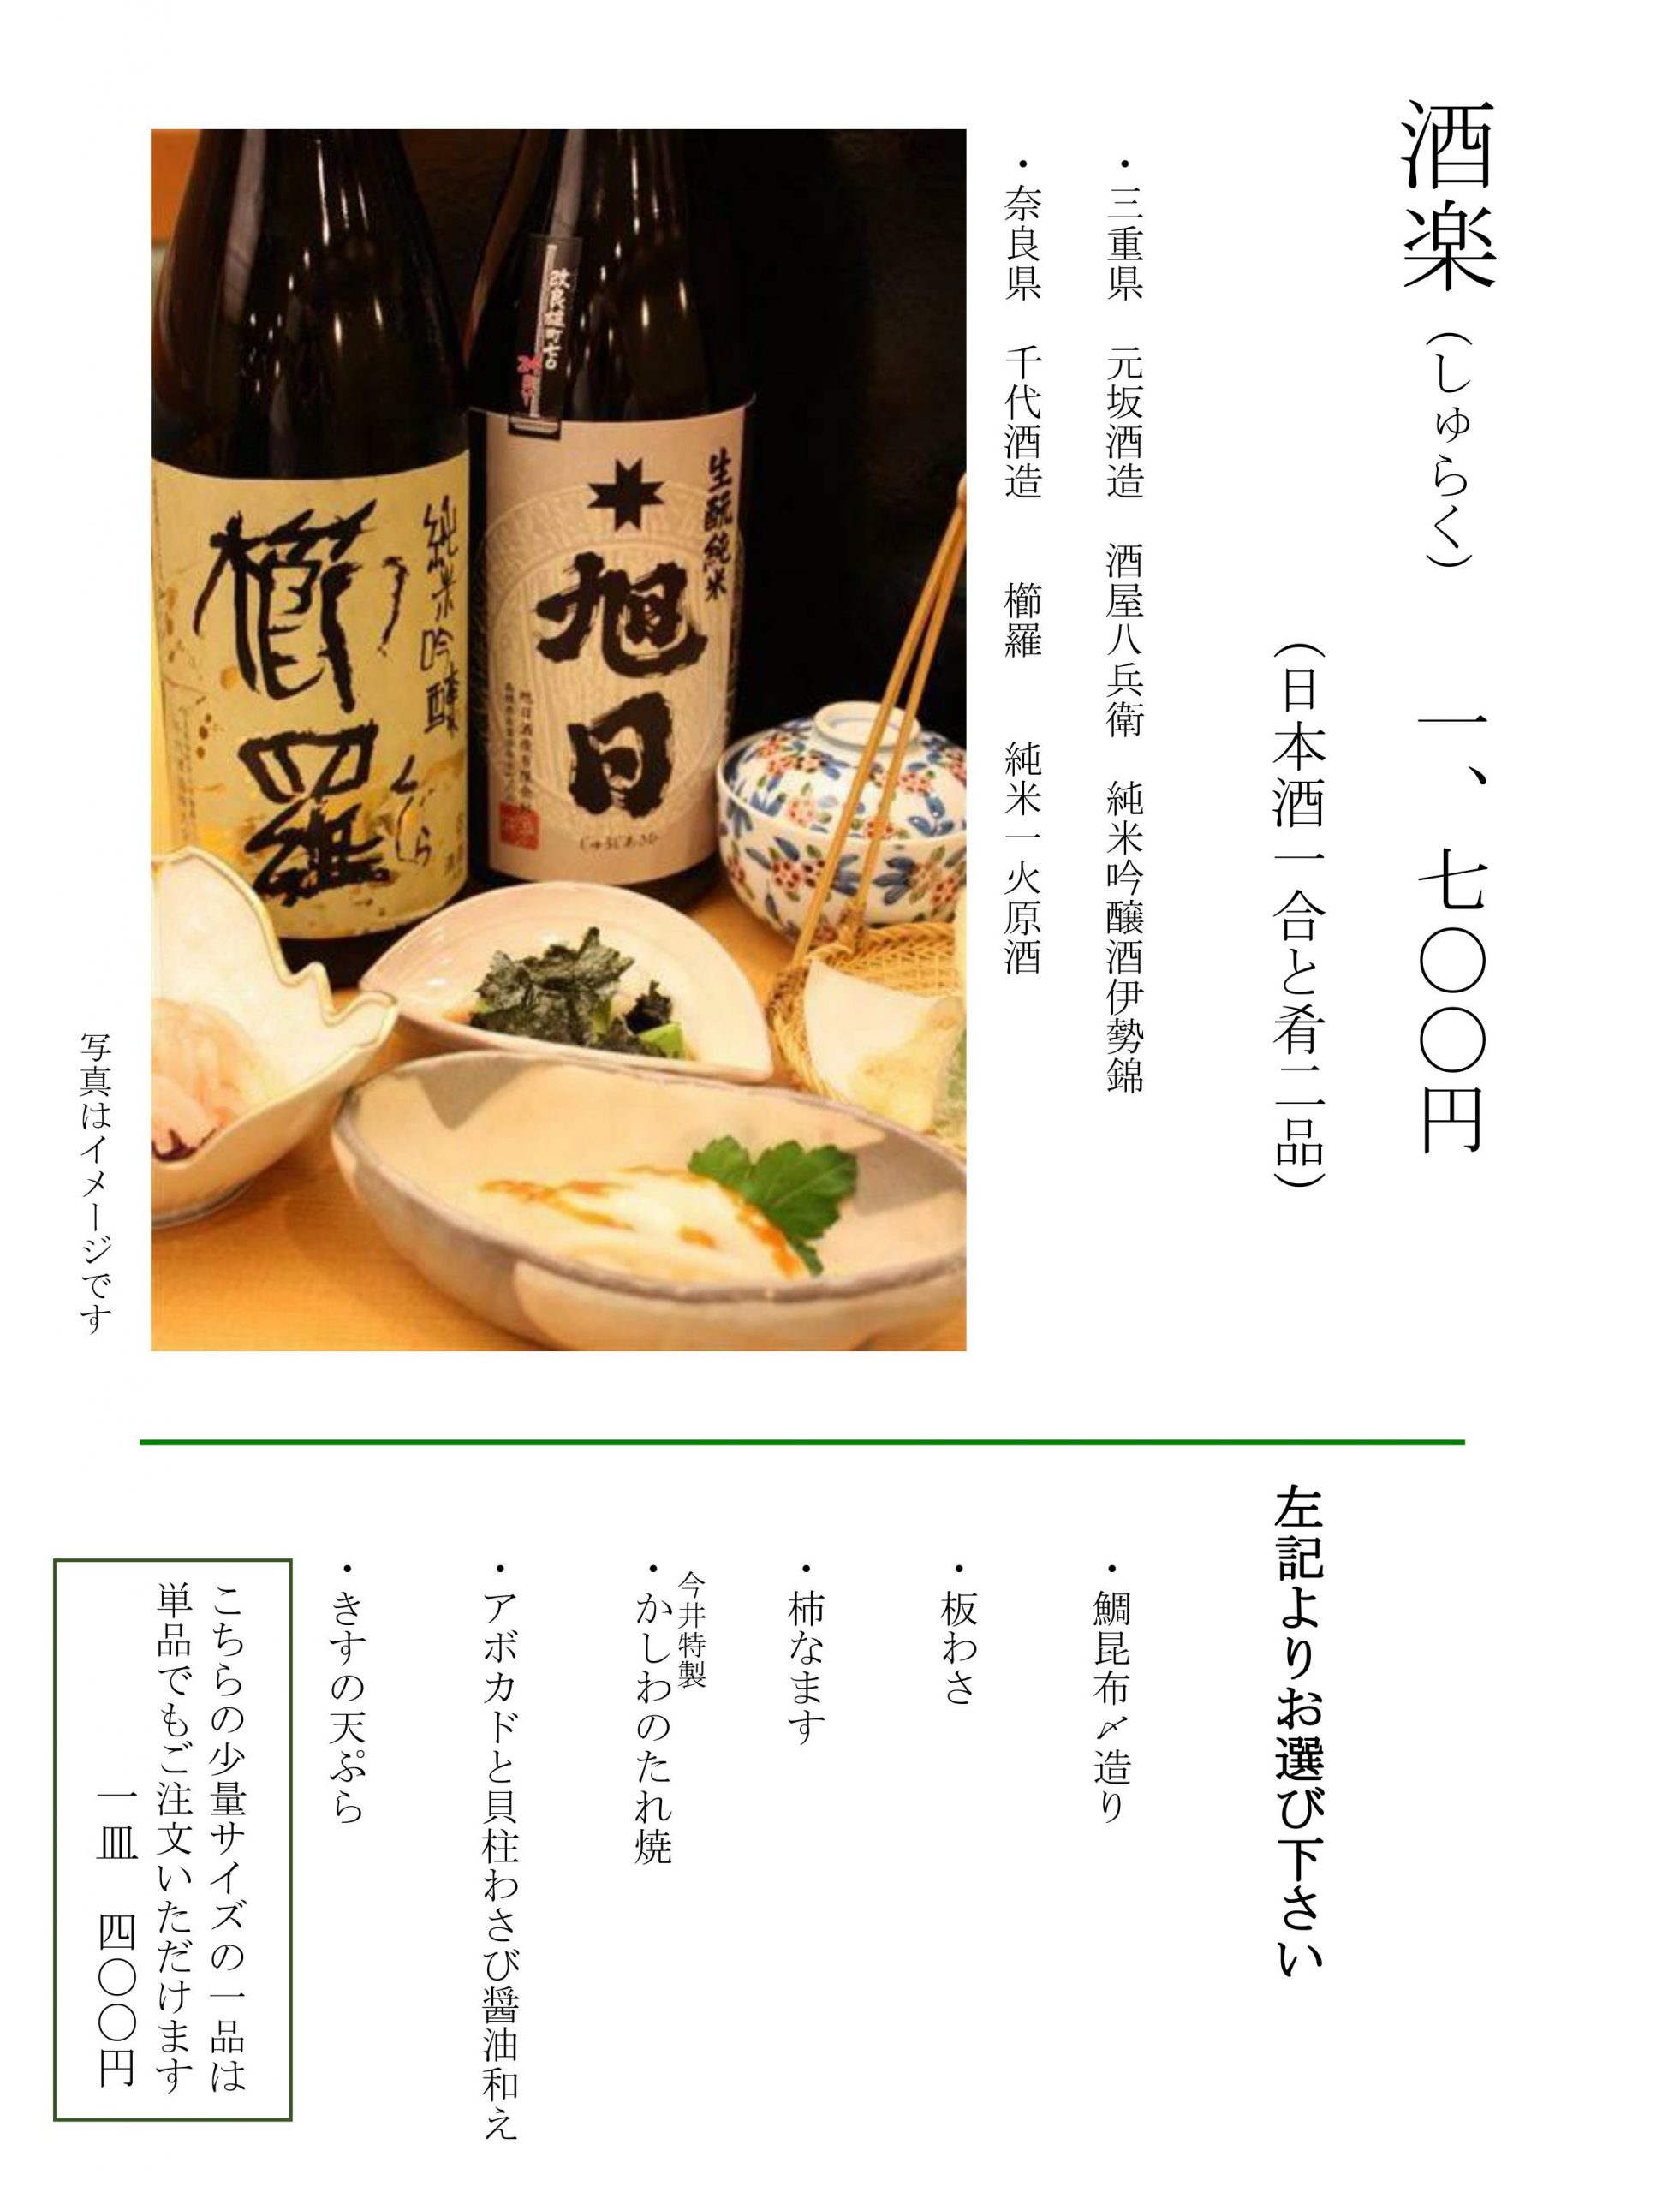 酒楽（しゅらく）　一、七〇〇円
（日本酒一合と肴二品）
・三重県　元坂酒造　酒屋八兵衛　純米吟醸酒伊勢錦
・奈良県　千代酒造　櫛羅　純米一火原酒
改良雄町七〇
生酛純米
旭日
じゅうじあさひ
純米吟醸
櫛羅
くじら
写真はイメージです
左記よりお選び下さい
・鯛昆布〆造り
・板わさ
・柿なます
今井特製
・かしわのたれ焼
・アボカドと貝柱わさび醤油和え
・きすの天ぷら
こちらの少量サイズの一品は
単品でもご注文いただけます
一皿　四〇〇円